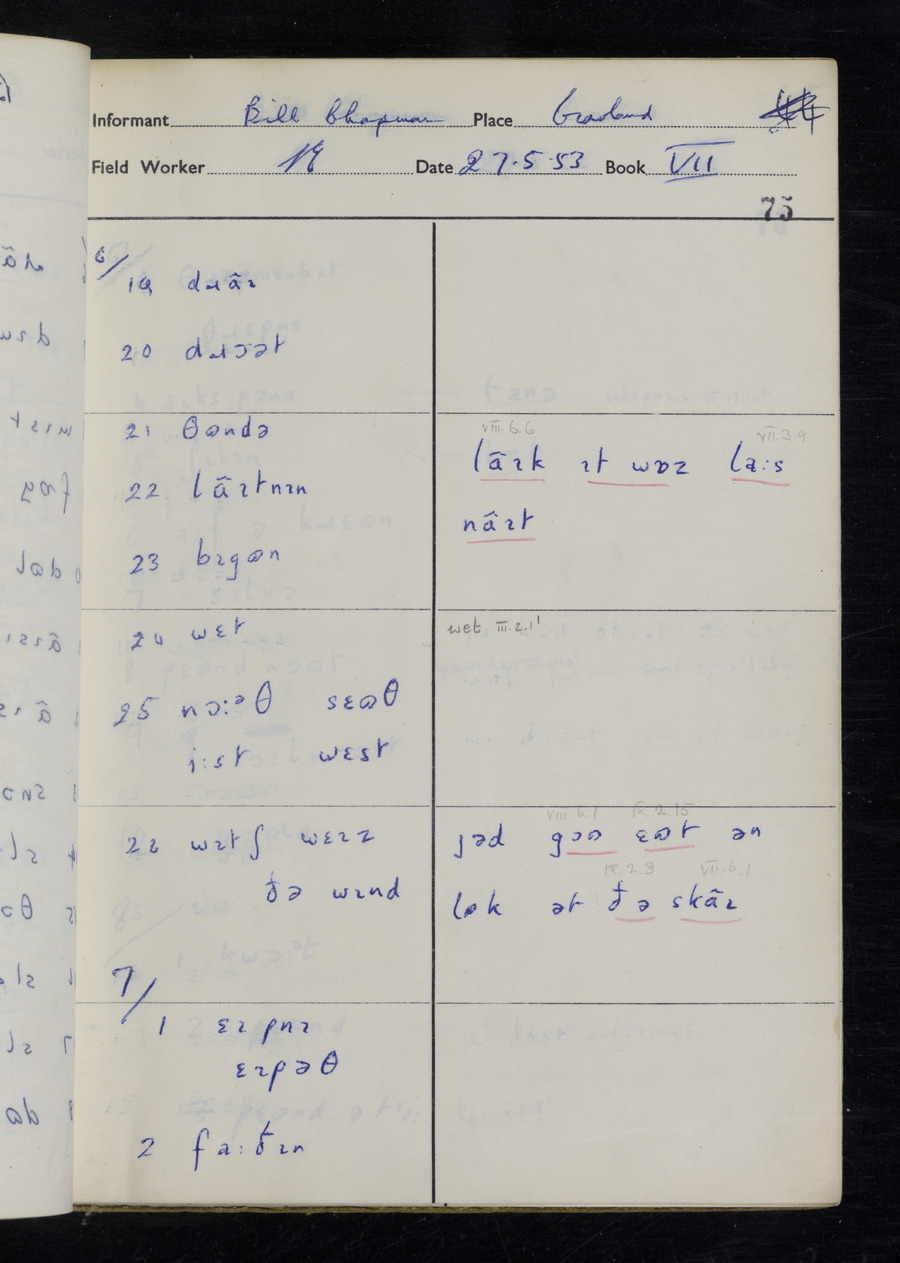 Informant Bill Chapman Place Crowland
Field Worker Date 27.5.53 Book VII
75
6/
19 dɹɑ̃ɪ
20 dɹɔət
21 θɷndə
22 lɑ̃ɪtnɪn
23 bɪgɷn
24 wɛt
25 nɔ:ᵊθ sɛɷθ
i:st wɛst
22 wɪtʃ wɛɪz
ðə wɪnd
7/
1 ɛɪpnɪ
ɛɪpəθ
2 fa:ðɪn
VIII.6.6 VII.3.9
lɑ̃ɪk ɪt wɒz la:s
nɑ̃ɪt
wet III.2.1'
VIII.6.1 IX.2.15
jəd gɔɷ ɛɷt ən
IX.2.3 VII.6.1
lɷk ət ðə skɑ̃ɪ